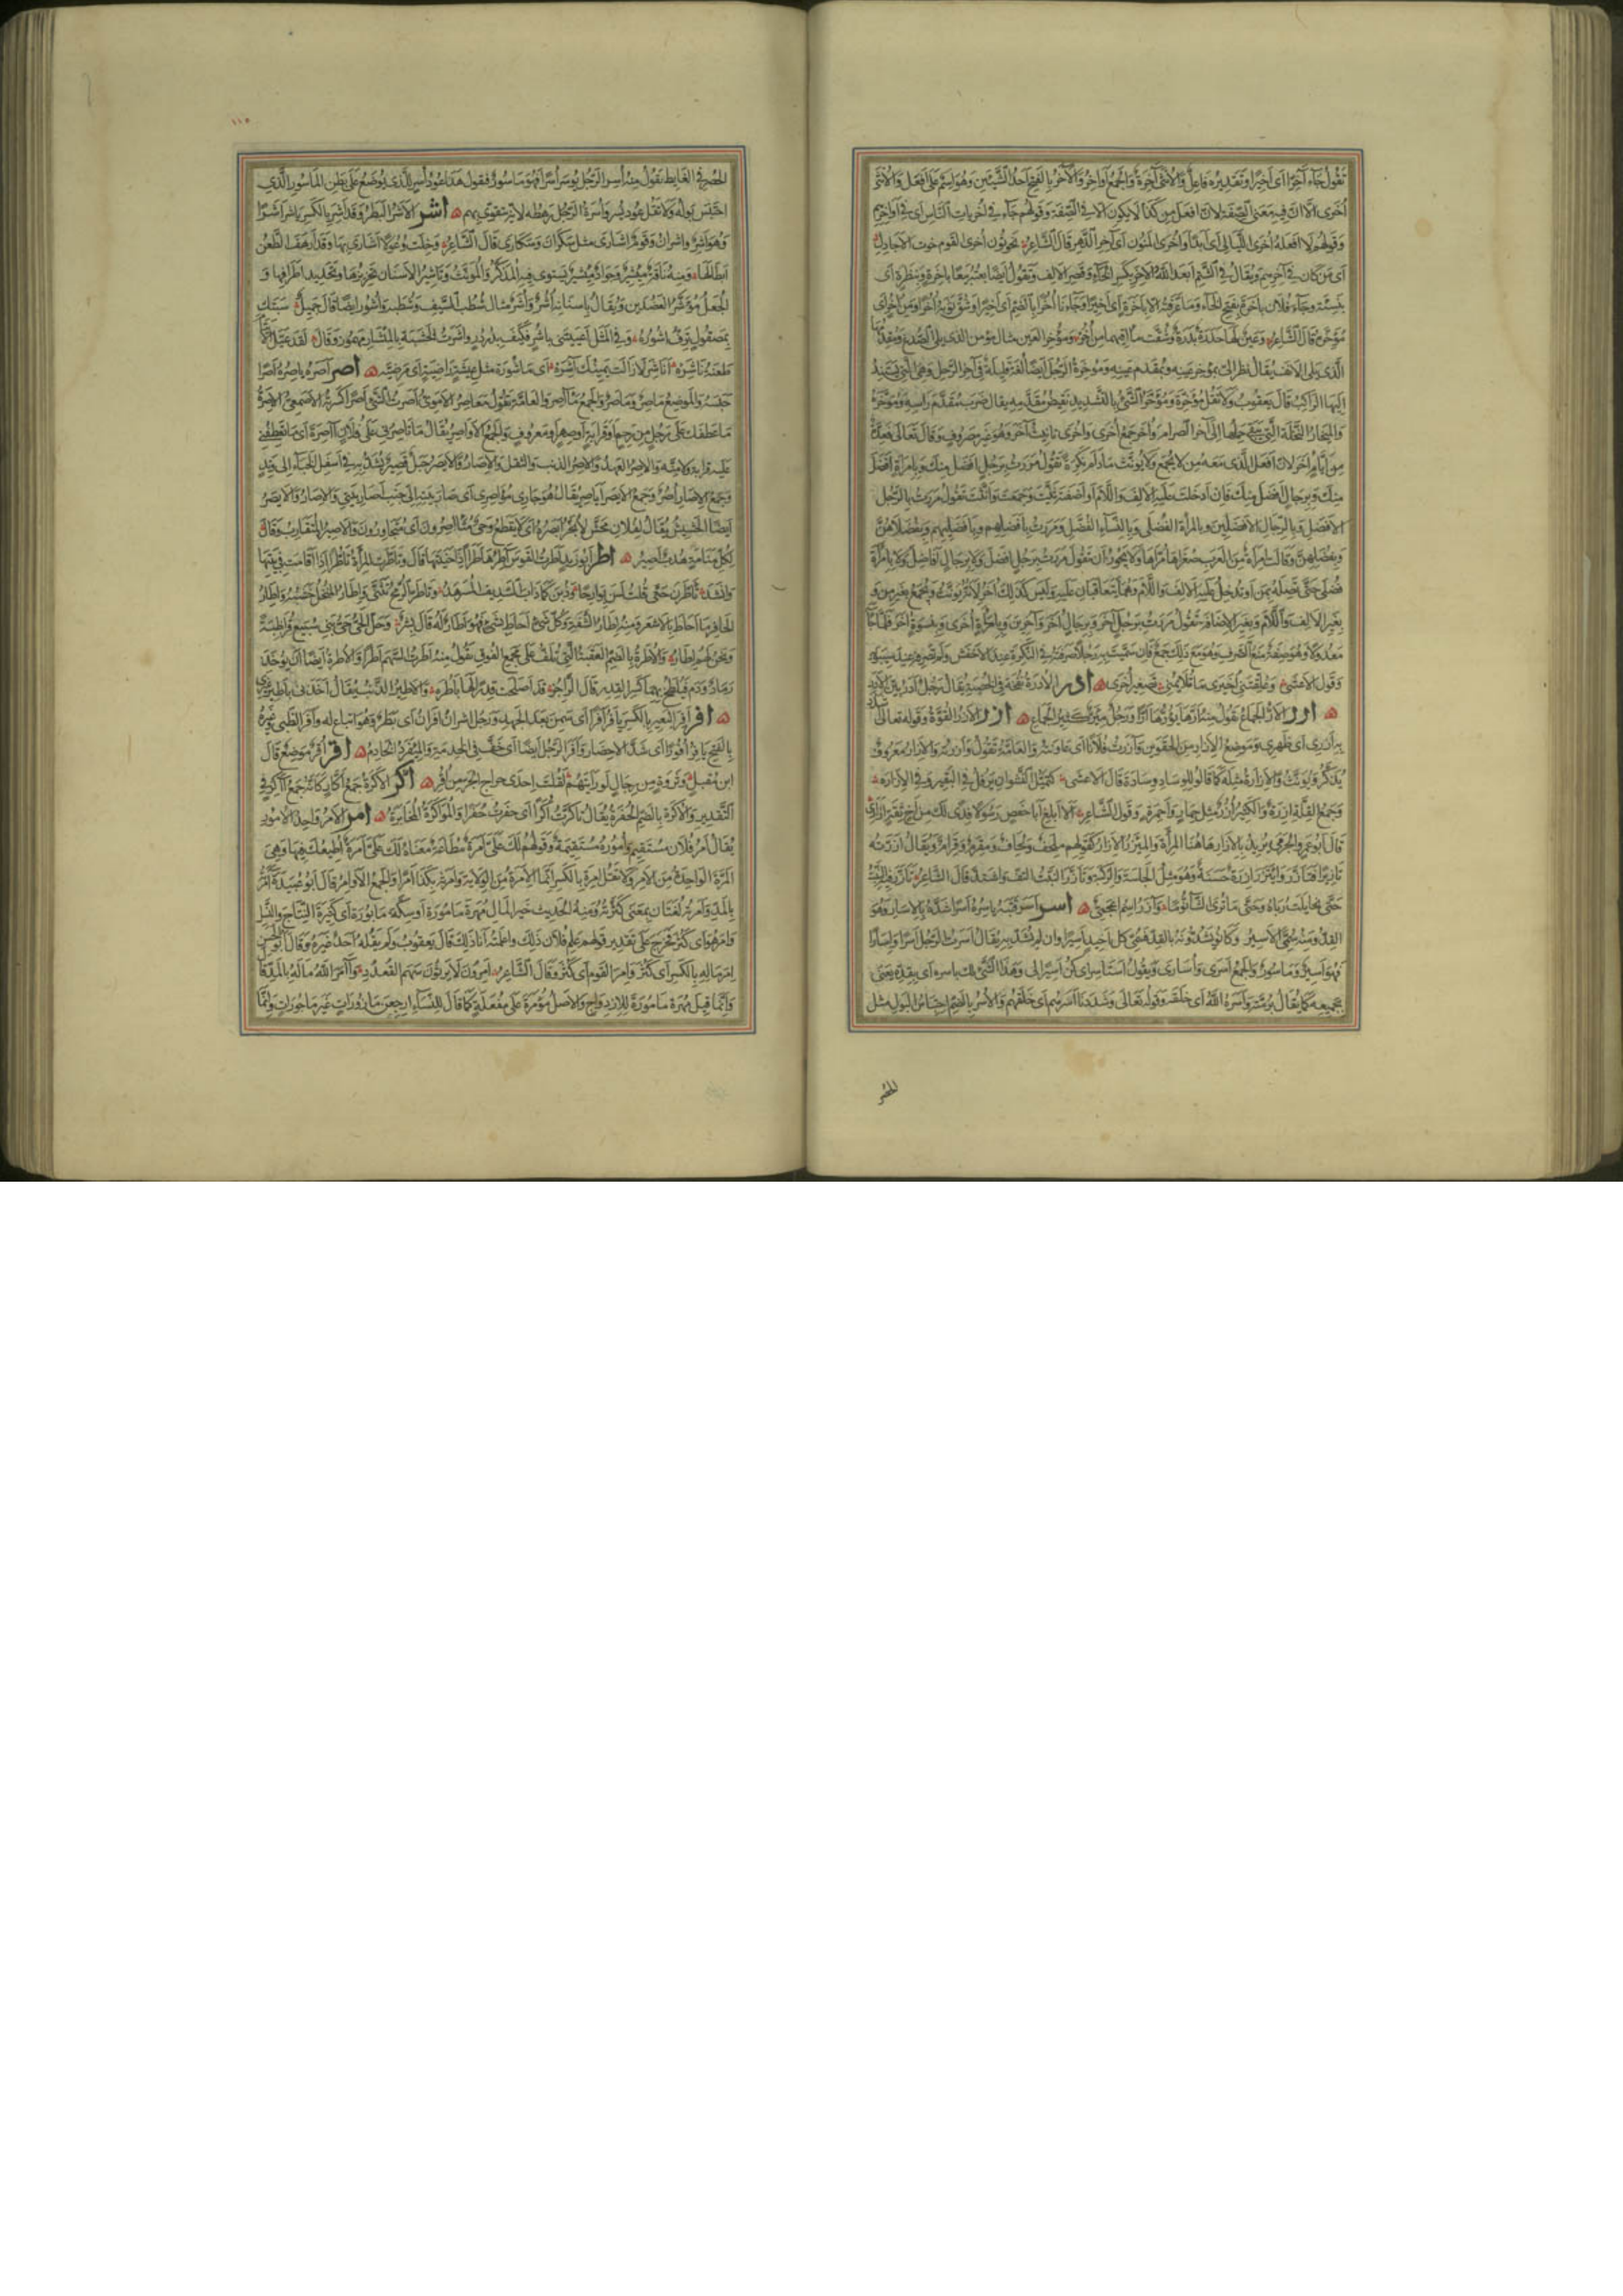 تقول جاء آخرا اى اخيرا وتقديره فاعل والانثى آخرة والجمع اواخر والآخر بالفتح احد الشيئين وهو اسم على افعل والانثى
اخرى الا ان فيه معنى الصفة لان افعل من كذا لا يكون الا فى الصفة وقولهم جاء فى اخريات الناس اى فى اواخرهم
وقولهم لا افعله اخرى الليالى اى ابدا واخرى المنون اى آخر الدهر قال الشاعر
اى من كان فى آخرهم ويقال فى الشتم ابعد الله الاخر بكسر الخاء وقصر الالف وتقول ايضا بعته بيعا باخرة وبنظرة اى
بنسيئة وجاء فلان باخرة بفتح الخاء وما عرفته الا باخرة اى اخيرا وجاءنا اخرا بالضم اى اخيرا وشق ثوبه اخرا ومن اخر اى
مؤخره قال الشاعر وعين لها حدرة بدرة وشقت مآقيهما من اخر ومؤخر العين مثال مؤمن الذى يلى الصدغ ومقدمها
الذى يلى الانف يقال نظر الى بمؤخر عينه وبمقدم عينه ومؤخرة الرحل ايضا لغة قليلة فى آخرة الرحل وهى التى يستند
اليها الراكب قال يعقوب ولا تقل مؤخرة ومؤخر الشئ بالتشديد نقيض مقدمه يقال ضرب مقدم راسه ومؤخره
والمئخار النخلة التى يبقى حملها الى آخر الصرام واخر جمع اخرى واخرى تانيث آخر وهو غير مصروف وقال تعالى فعدة
من ايام اخر لان افعل الذى معه من لا يجمع ولا يؤنث ما دام نكرة تقول مررت برجل افضل منك وبامراة افضل
منك وبرجال افضل منك فان ادخلت عليه الالف واللام او اضفته ثنيت وجمعت وانثت تقول مررت بالرجل
الافضل وبالرجال الافضلين وبالمرأة الفضلى وبالنساء الفضل ومررت بافضلهم وبافضليهم وبفضلاهن
وبفضلهن وقالت امرأة من العرب صغراها مراها ولا يجوز ان تقول مررت برجل افضل ولا برجال افاضل ولا بامرأة
فضلى حتى تصله بمن او تدخل عليه الالف واللام وهما يتعاقبان عليه وليس كذلك آخر لانه يؤنث ويجمع بغير من و
بغير الالف واللام وبغير الاضافة تقول مررت برجل آخر وبرجال اخر وآخرين وبامرأة اخرى وبنسوة اخر فلما جاء
معدولا وهو صفة منع الصرف وهو مع ذلك جمع فان سميت به رجلا صرفته فى النكرة عند الاخفش ولم تصرفه عند سيبويه
وقول الاعشى وعلقتنى اخيرى ما تلايمنى تصغير اخرى ادر الادرة نفخة فى الخصية يقال رجل آدر بين الادر
ارر الار الجماع تقول منه ارها يؤرها ارا ورجل مئر كثير الجماع ازر الازر القوة وقوله تعالى اشدد
به ازرى اى ظهرى وموضع الازار من الحقوين وآزرت فلانا اى عاونته والعامة تقول وازرته والازار معروف
يذكر ويؤنث والازارة مثله كما قالوا للوساد وسادة قال الاعشى كتميل النشوان يرفل فى البقيرة وفى الازاره
وجمع القلة ازرة والكثير ازر مثل حمار واحمرة وحمر وقول الشاعر الا ابلغ ابا حفص رسولا فدى لك من اخى ثقة ازارى
قال ابو عمرو الجرمى يريد بالازار هاهنا المرأة والمئزر الازار كقولهم ملحف ولحاف ومقرم وقرام ويقال ازرته
تازيرا فتازر وايتزر ازرة حسنة وهو مثل الجلسة والركبة وتازر النبت التف واشتد قال الشاعر تازر فيه النبت
حتى تخايلت رباه وحتى ما ترى الشاء نوما وآزر اسم اعجمى اسر اسر قتبه ياسره اسرا شده بالاسار وهو
القد ومنه سمى الاسير وكانوا يشدونه بالقد فسمى كل اخيذ اسيرا وان لم يشد به يقال اسرت الرجل اسرا واسارا
فهو اسير وماسور والجمع اسرى واسارى وتقول استاسر اى كن اسيرا لى وهذا الشئ لك باسره اى بقده يعنى
بجميعه كما يقال برمته واسره الله اى خلقه وقوله تعالى وشددنا اسرهم اى خلقهم والاسر بالضم احتباس البول مثل
الحصر فى الغايط تقول منه اسر الرجل يوسر اسرا فهو ماسور وتقول هذا عود اسر للذى يوضع على بطن الماسور الذى
احتبس بوله ولا تقل عود يسر واسرة الرجل رهطه لانه يتقوى بهم اشر الاشر البطر وقد اشر بالكسر ياشر اشرا
وهو اشر واشران وقوم اشارى مثل سكران وسكارى قال الشاعر وخلت وعولا اشارى بها وقد ازهف الطعن
ابطالها ومنه ناقة مئشير وجواد مئشير يستوى فيه المذكر والمؤنث وتاشير الاسنان تحزيزها وتحديد اطرافها و
الجعل مؤشر العضدين ويقال باسنانه اشر واشر مثال شطب السيف وشطبه واشور ايضا قال جميل سبتك
بمصقول ترف اشوره وفى المثل اعييتنى باشر فكيف بدردر واشرت الخشبة بالمئشار مهموز وقال لقد عيل الايتام
طعنة ناشره اناشر لا زالت يمينك آشره اى ماشورة مثل عيشة راضية اى مرضية اصر اصره ياصره اصرا
حبسه والموضع ماصر وماصر والجمع مآصر والعامة تقول معاصر الاموى اصرت الشئ اصرا كسرته الاصمعى الآصرة
ما عطفك على رجل من رحم او قرابة او صهر او معروف والجمع الاواصر يقال ما تاصرنى على فلان آصرة اى ما تعطفنى
عليه قرابة ولا منة والاصر العهد والاصر الذنب والثقل والاصار والايصر حبل قصير يشد به فى اسفل الخباء الى وتد
وجمع الاصار اصر وجمع الايصر اياصر يقال هو جارى مؤاصرى اى اصار بيته الى جنب اصار بيتى والاصار والايصر
ايضا الحشيش يقال لفلان محش لا يجز ايصره اى لا يقطع وحى متآصرون اى متجاورون والاصير المتقارب وقال
لكل منامة هدب اصير اطر ابو زيد اطرت القوس آطرها اطرا اذا حنيتها قال وتاطرت المراة تاطرا اذا اقامت فى بيتها
وانشد تاطرن حتى قلت لسن بوارحا وذبن كما ذاب السديف المسرهد وتاطر الرمح تثنى واطار المنخل خشبه واطار
الحافر ما احاط بالاشعر ومنه اطار الشفة وكل شئ احاط بشئ فهو اطار له قال بشر وحل الحى حى بنى سبيع قراضبة
ونحن لهم اطار والاطرة بالضم العقبة التى تلف على مجمع الفوق تقول منه اطرت السهم اطرا والاطرة ايضا ان يؤخذ
رماد ودم فيلطخ بهما كسر القدر قال الراجز قد اصلحت قدرا لها باطره والاطير الذنب يقال اخذنى باطير غيرى
افر افر البعير بالكسر يافر افرا اى سمن بعد الجهد ورجل اشران افران اى بطر وهو اتباع له وافر الظبى وغيره
بالفتح يافر افورا اى شد الاحضار وافر الرجل ايضا اى خف فى الخدمة والمئفر الخادم اقر اقر موضع قال
ابن مقبل وثروة من رجال لو رايتهم لقلت احدى حراج الجر من اقر اكر الاكرة جمع اكار كانه جمع آكر فى
التقدير والاكرة بالضم الحفرة يقال تاكرت اكرا اى حفرت حفرا والمؤاكرة المخابرة امر الامر واحد الامور
يقال امر فلان مستقيم واموره مستقيمة وقولهم لك على امرة مطاعة معناه لك على امرة اطيعك فيها وهى
المرة الواحدة من الامر ولا تقل امرة بالكسر انما الامرة من الولاية وامرته بكذا امرا والجمع الاوامر قال ابو عبيدة آمرته
بالمد وامرته لغتان بمعنى كثرته ومنه الحديث خير المال مهرة مامورة او سكة مابورة اى كثيرة النتاج والنسل
وامر هو اى كثر فخرج على تقدير قولهم علم فلان ذلك واعلمته انا ذلك قال يعقوب ولم يقله احد غيره وقال ابو الحسن
امر ماله بالكسر اى كثر وامر القوم اى كثروا وقال الشاعر امرون لا يرثون سهم القعدد وآمر الله ماله بالمد قال
وانما قيل مهرة مامورة للازدواج والاصل مؤمرة على مفعلة كما قال للنساء ارجعن مازورات غير ماجورات وانما